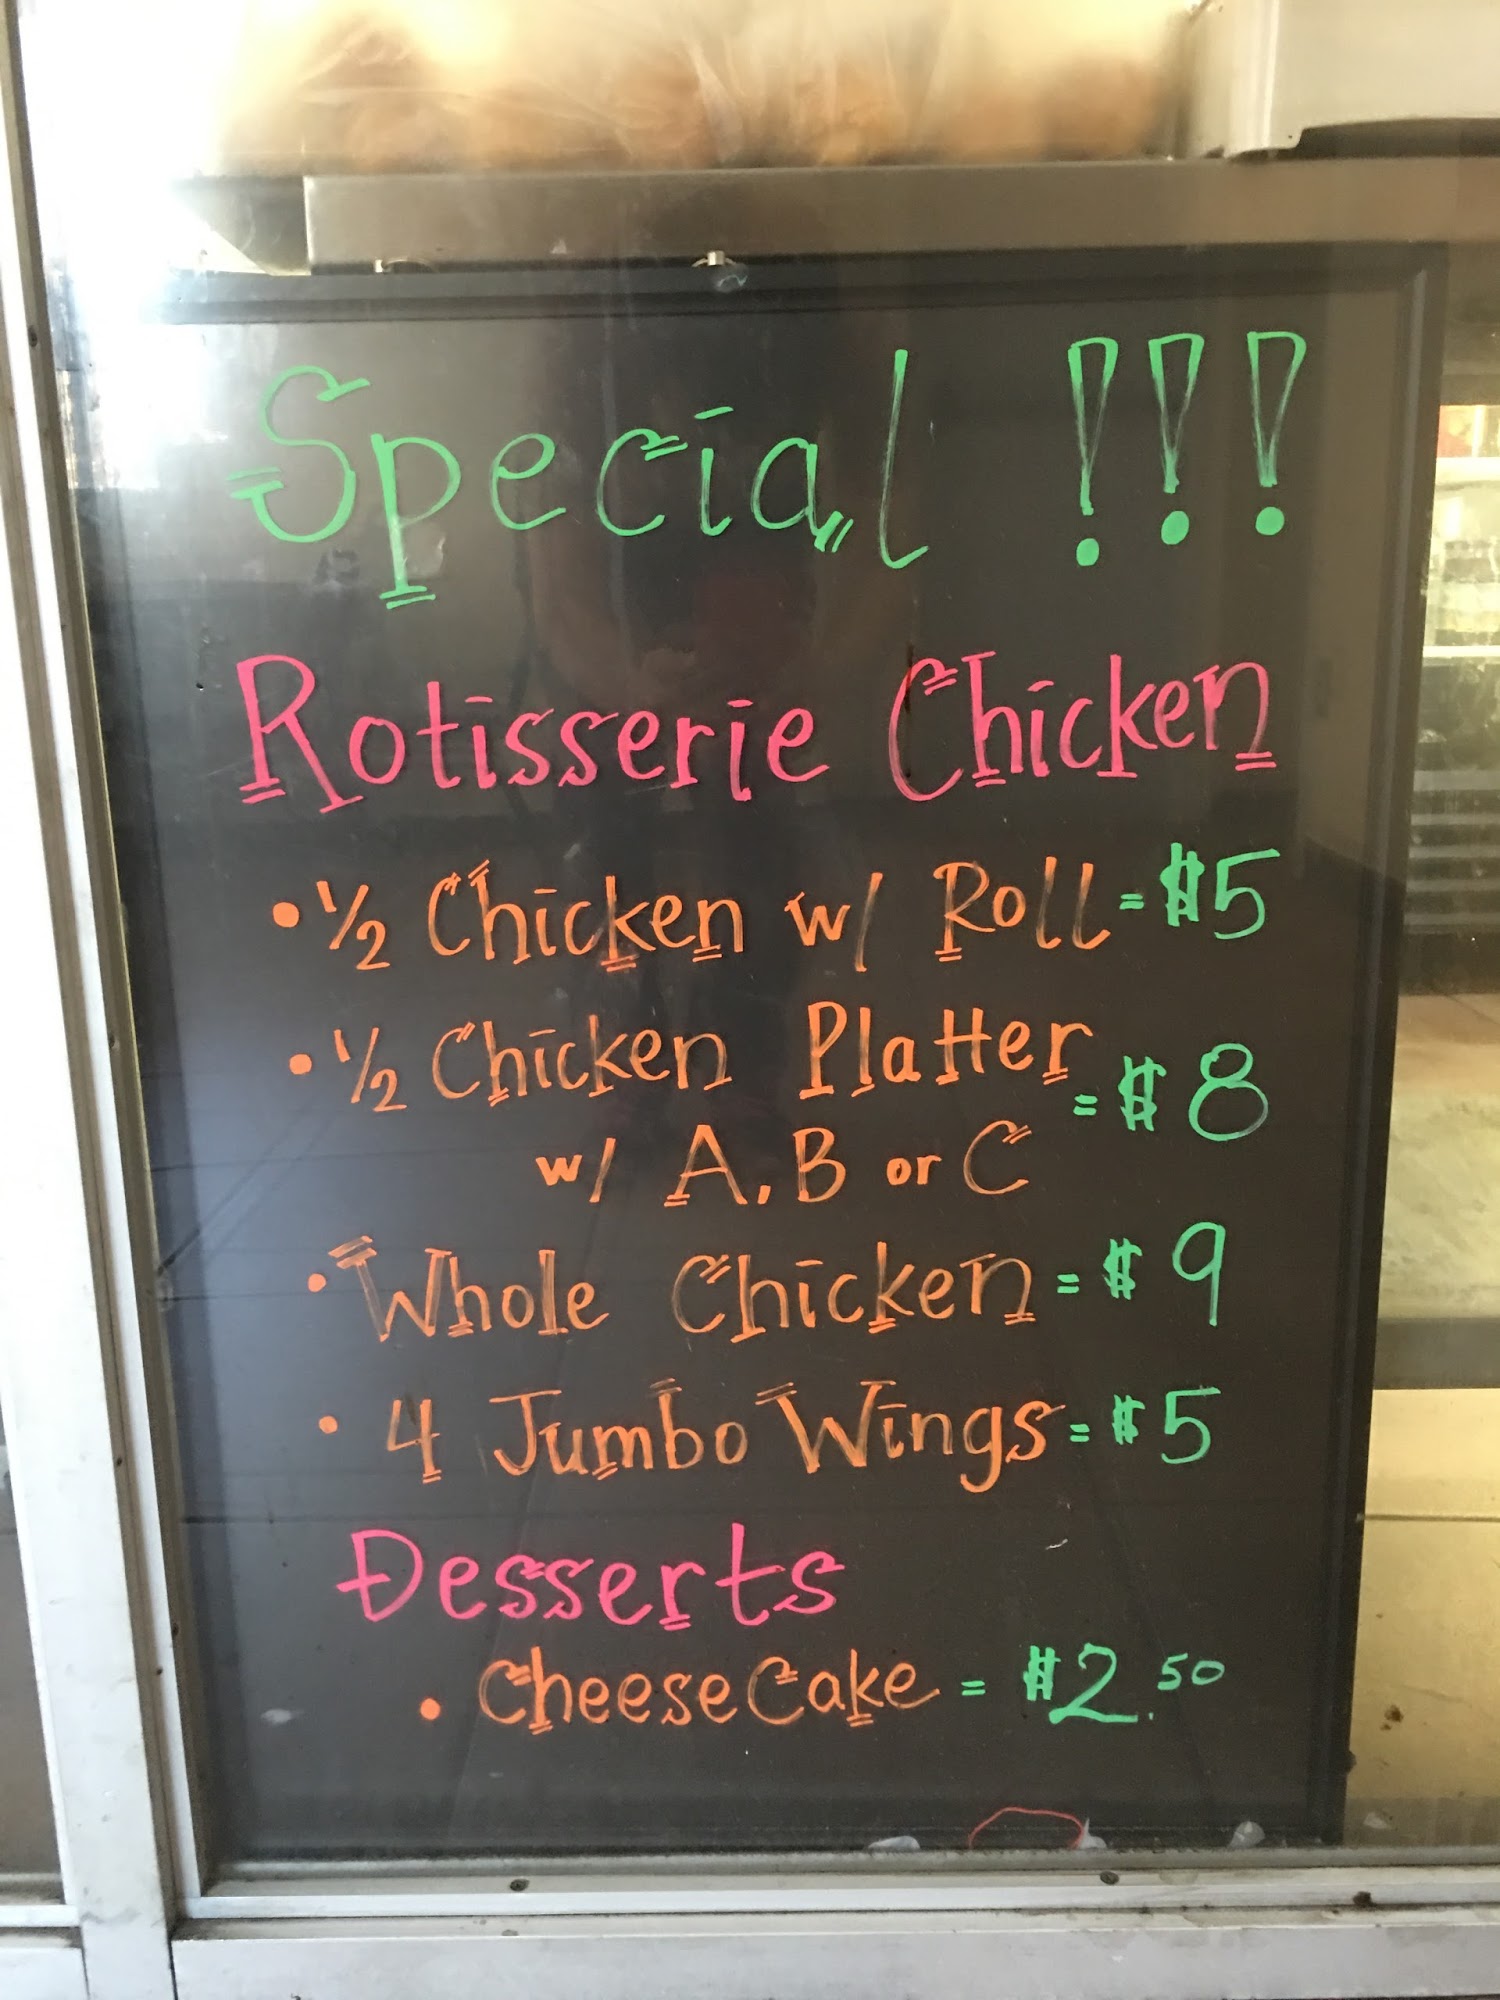 Special !!!
Rotisserie Chicken
• 1/2 Chicken w/ Roll = $5
• 1/2 Chicken Platter = $8
w/ A, B or C
• Whole Chicken = $9
• 4 Jumbo Wings = $5
Desserts
• CheeseCake = $2.50